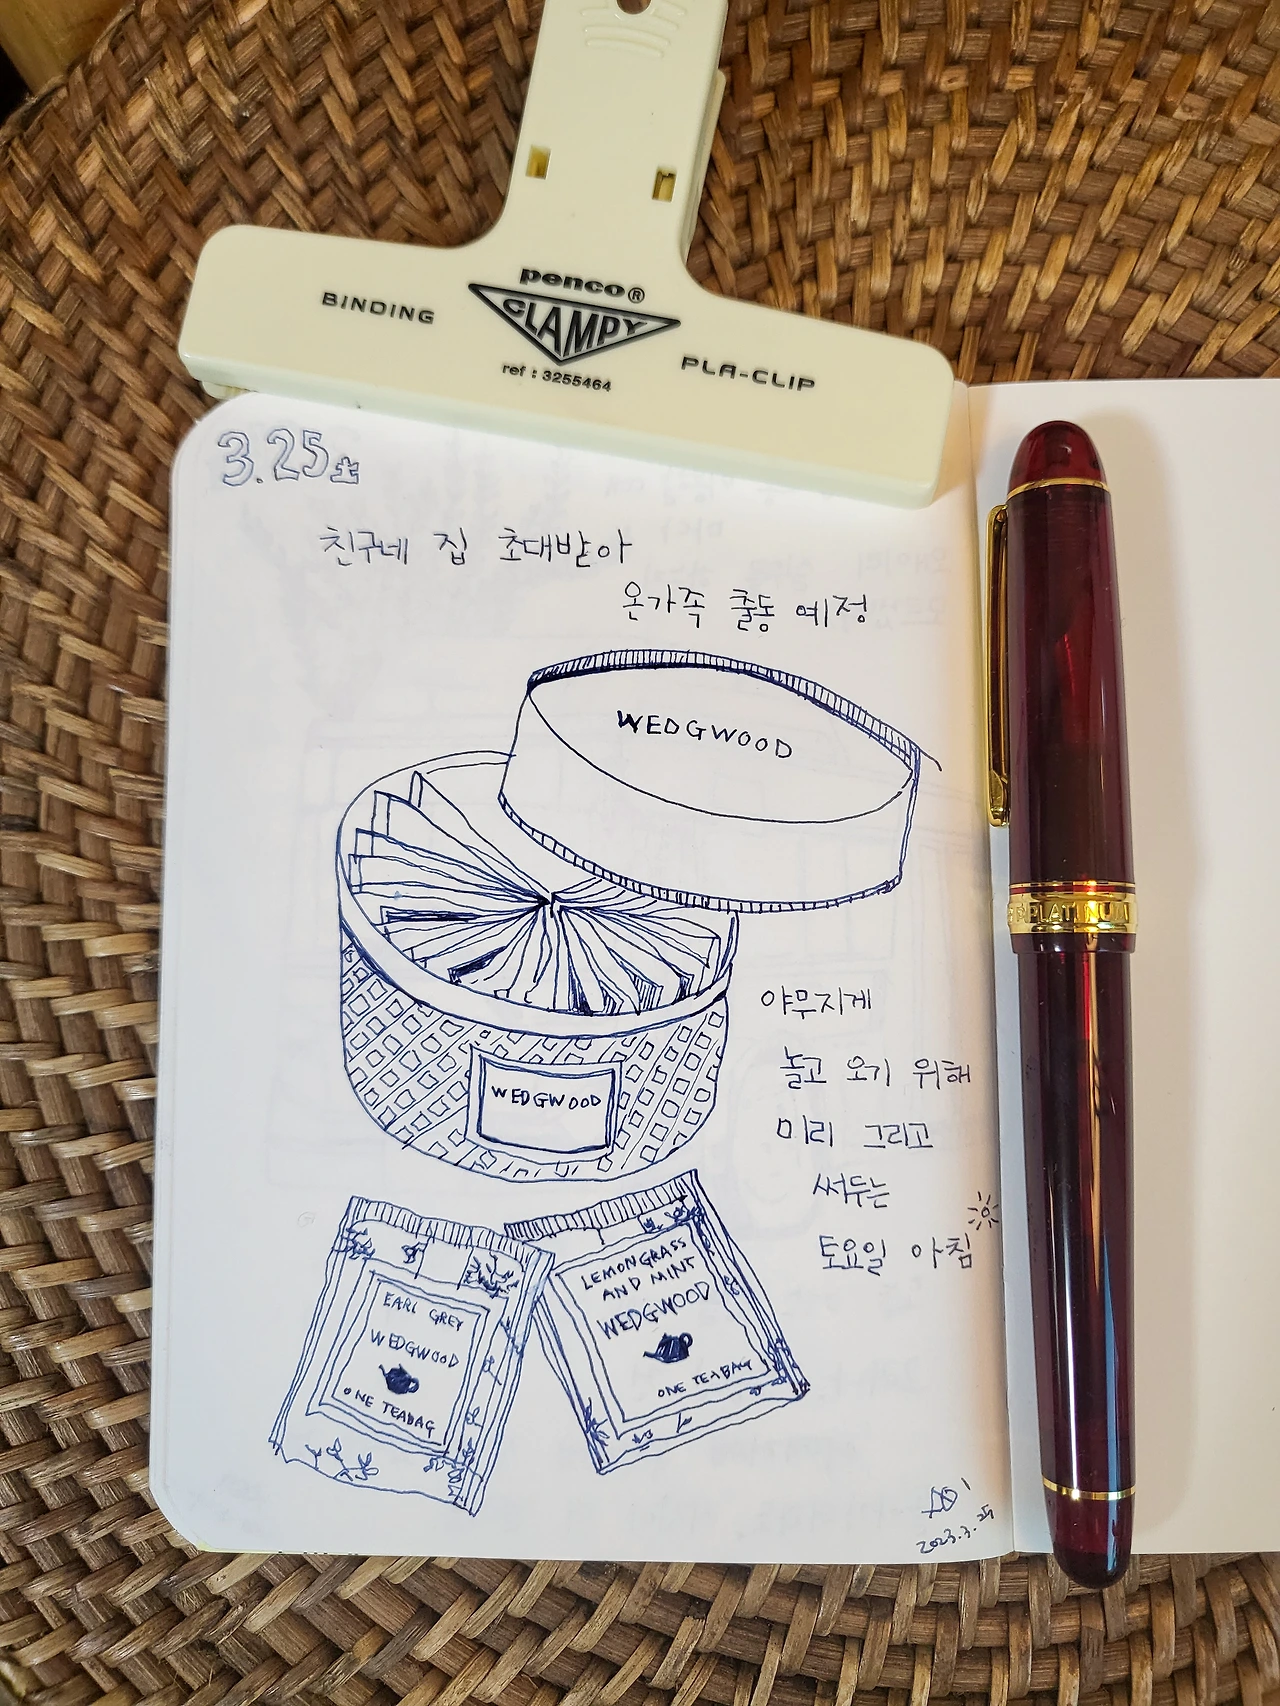 penco®
CLAMPY
BINDING
PLA-CLIP
ref : 3255464
3.25 土
친구네 집 초대받아
온가족 출동 예정
WEDGWOOD
WEDGWOOD
야무지게
놀고 오기 위해
미리 그리고
써두는
토요일 아침
EARL GREY
WEDGWOOD
ONE TEABAG
LEMONGRASS
AND MINT
WEDGWOOD
ONE TEABAG
2023.3.25
PLATINUM